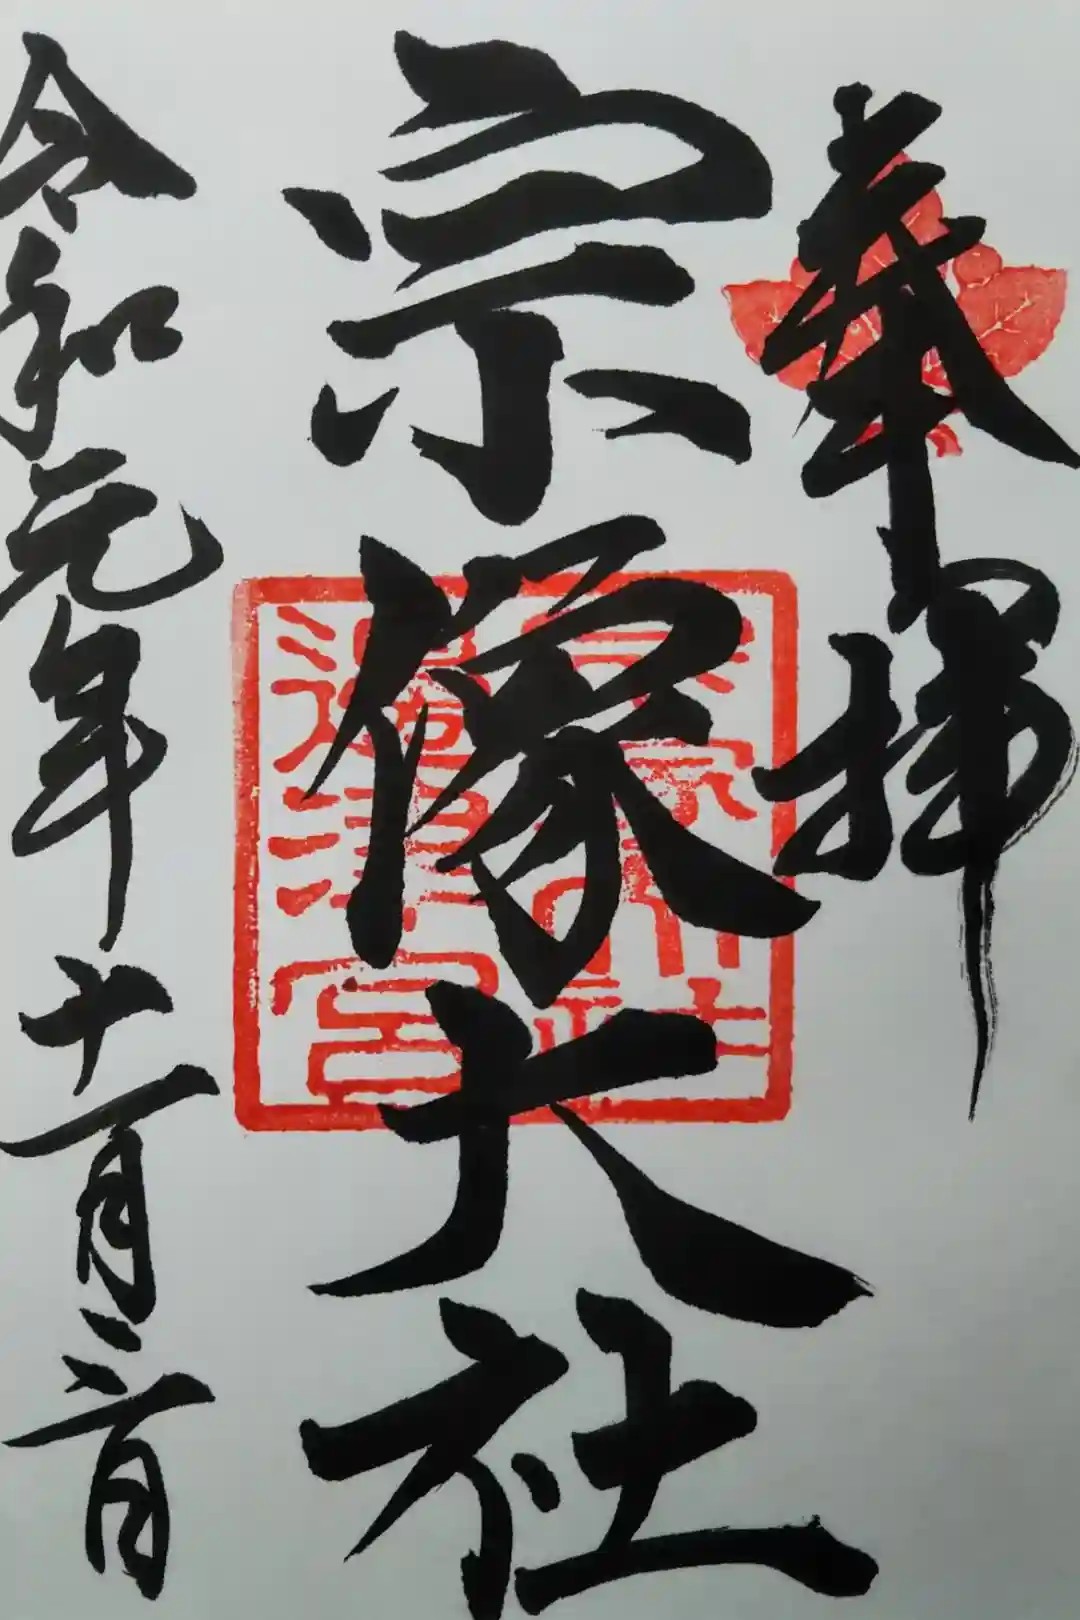 奉拝
宗像大社
宗像大社
邊津宮
令和元年十一月三日